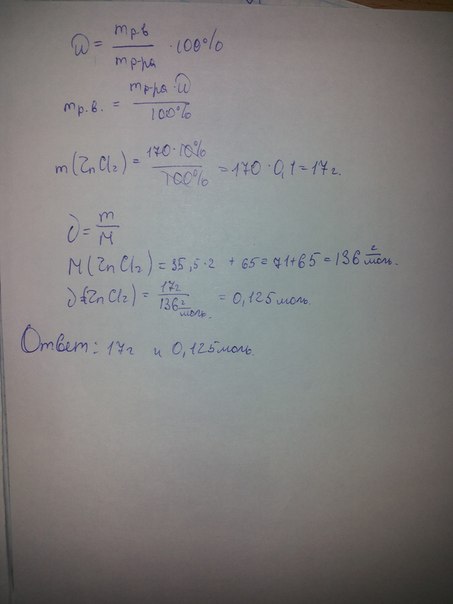 ω = m р.в / m р-ра · 100%
m р.в. = m р-ра · ω / 100%
m(ZnCl₂) = 170·10% / 100% = 170 · 0,1 = 17г.
ν = m / M
M(ZnCl₂) = 35,5·2 + 65 = 71+65 = 136 г/моль.
ν(ZnCl₂) = 17г / 136 г/моль. = 0,125 моль.
Ответ: 17г и 0,125 моль.